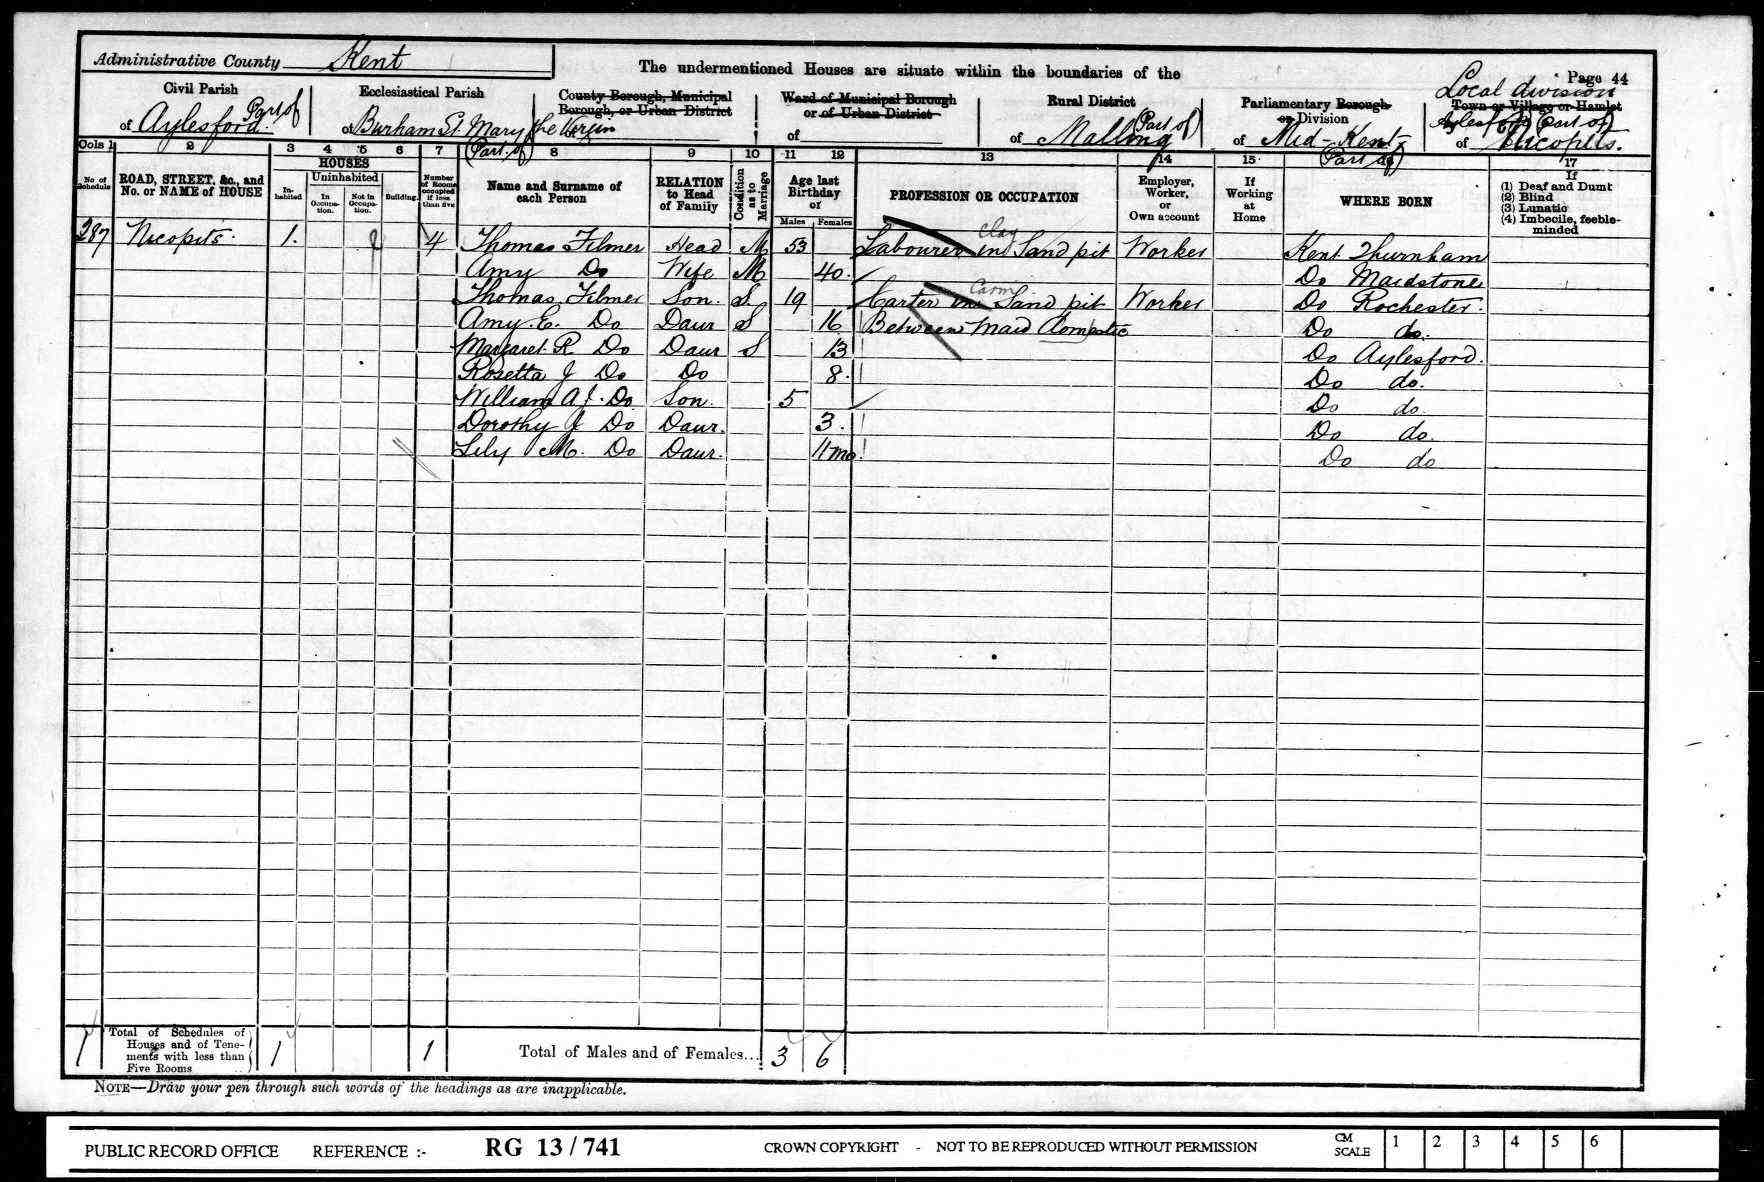 Administrative County Kent
The undermentioned Houses are situate within the boundaries of the
Page 44
Civil Parish
of Aylesford Part of
Ecclesiastical Parish
of Burham St. Mary the Virgin (Part of)
County Borough, Municipal
Borough, or Urban District
Ward of Municipal Borough
or of Urban District
of
Rural District
of Malling Part of
Parliamentary Borough
or Division
of Mid-Kent (Part of)
Local division
Town or Village or Hamlet
Aylesford (Part of)
of
Cols 1 2 3 4 5 6 7 8 9 10 11 12 13 14 15 17
No. of Schedule
ROAD, STREET, &c., and No. or NAME of HOUSE
HOUSES
Inhabited
Uninhabited
In Occupation.
Not in Occupation.
Building.
Number of Rooms occupied if less than five
Name and Surname of each Person
RELATION to Head of Family
Condition as to Marriage
Age last Birthday of
Males Females
PROFESSION OR OCCUPATION
Employer, Worker, or Own account
If Working at Home
WHERE BORN
If
(1) Deaf and Dumb
(2) Blind
(3) Lunatic
(4) Imbecile, feeble-minded
287 Nicopits. 1. 4 Thomas Filmer Head M 53 Labourer in Sand pit clay Worker Kent Thurnham
Amy Do Wife M 40. Do Maidstone
Thomas Filmer Son. S 19 Carter in Sand pit Carm Worker Do Rochester.
Amy. E. Do Daur S 16 Between Maid domestic Do do.
Margaret. R Do Daur S 13 Do Aylesford.
Rosetta J Do Do 8. Do do.
William A J. Do Son. 5 Do do.
Dorothy J Do Daur. 3. Do do.
Lily M. Do Daur. 11mo Do do
1 Total of Schedules of Houses and of Tenements with less than Five Rooms 1 1 Total of Males and of Females... 3 6
NOTE—Draw your pen through such words of the headings as are inapplicable.
PUBLIC RECORD OFFICE REFERENCE :- RG 13/741 CROWN COPYRIGHT - NOT TO BE REPRODUCED WITHOUT PERMISSION CM SCALE 1 2 3 4 5 6